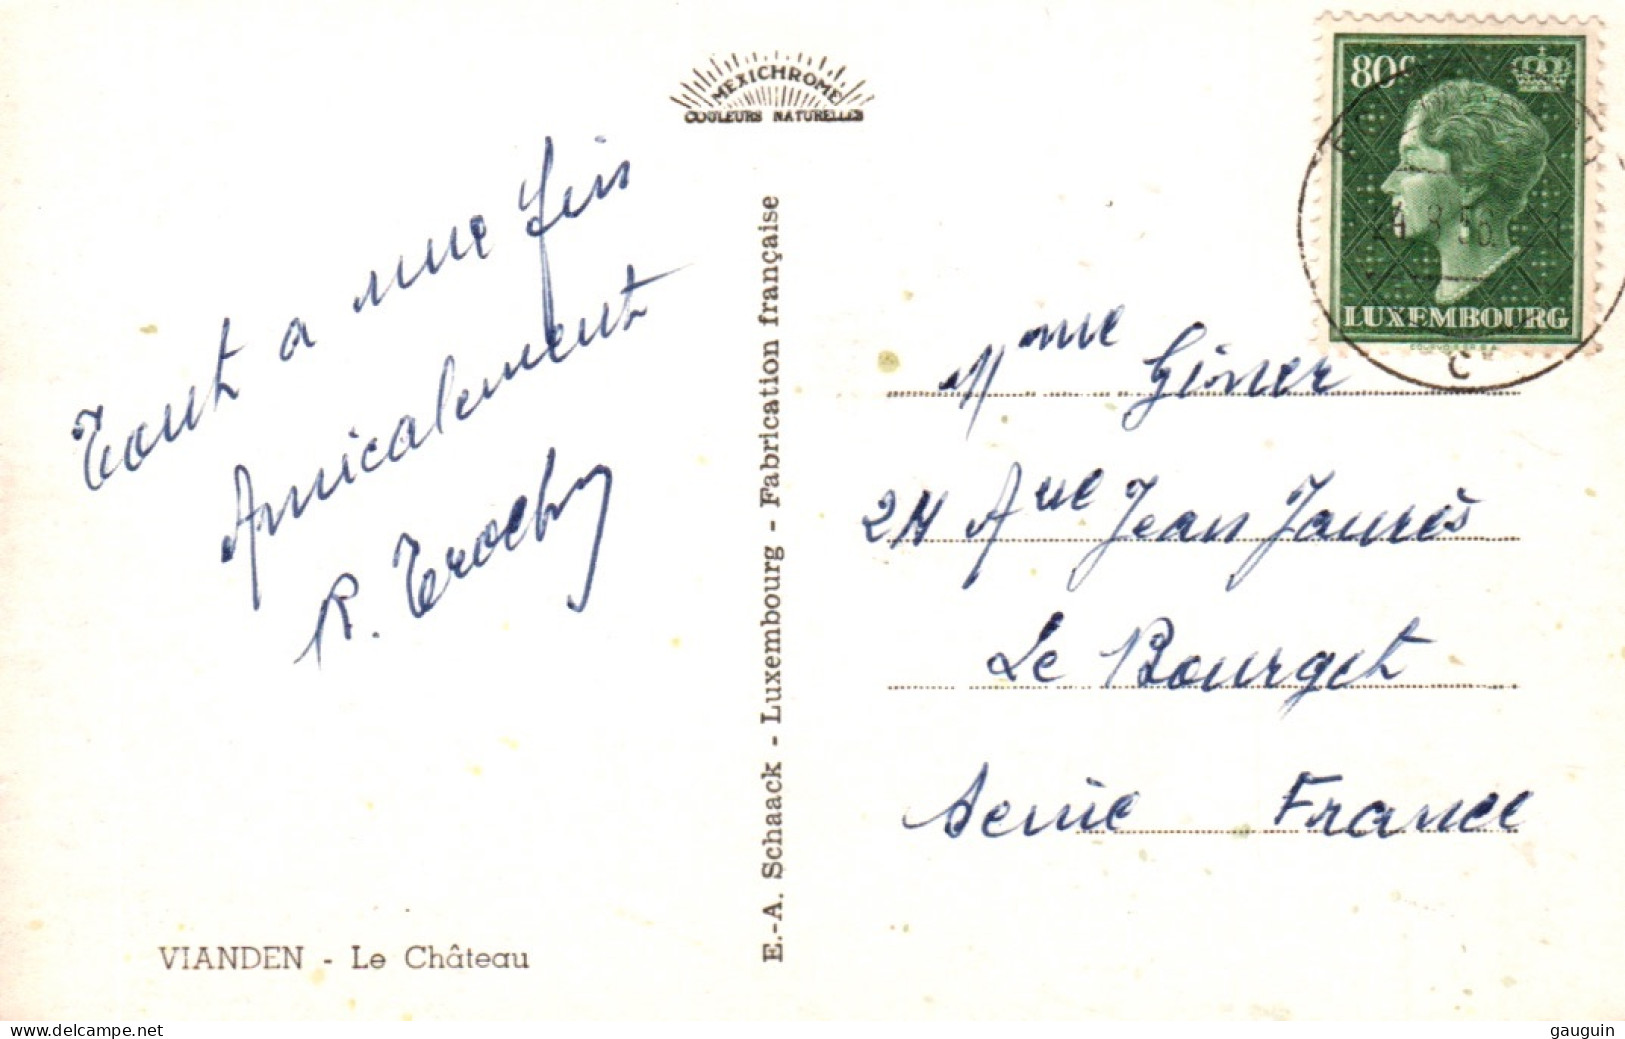 MEXICHROME
COULEURS NATURELLES
80c
LUXEMBOURG
COURVOISIER S.A.
8 56
C
Tout a une fin
Amicalement
R.
E.-A. Schaack - Luxembourg - Fabrication française
Mme Giner
24 Aue Jean Jaurès
Le Bourget
Seine France
VIANDEN - Le Château
www.delcampe.net
gauguin